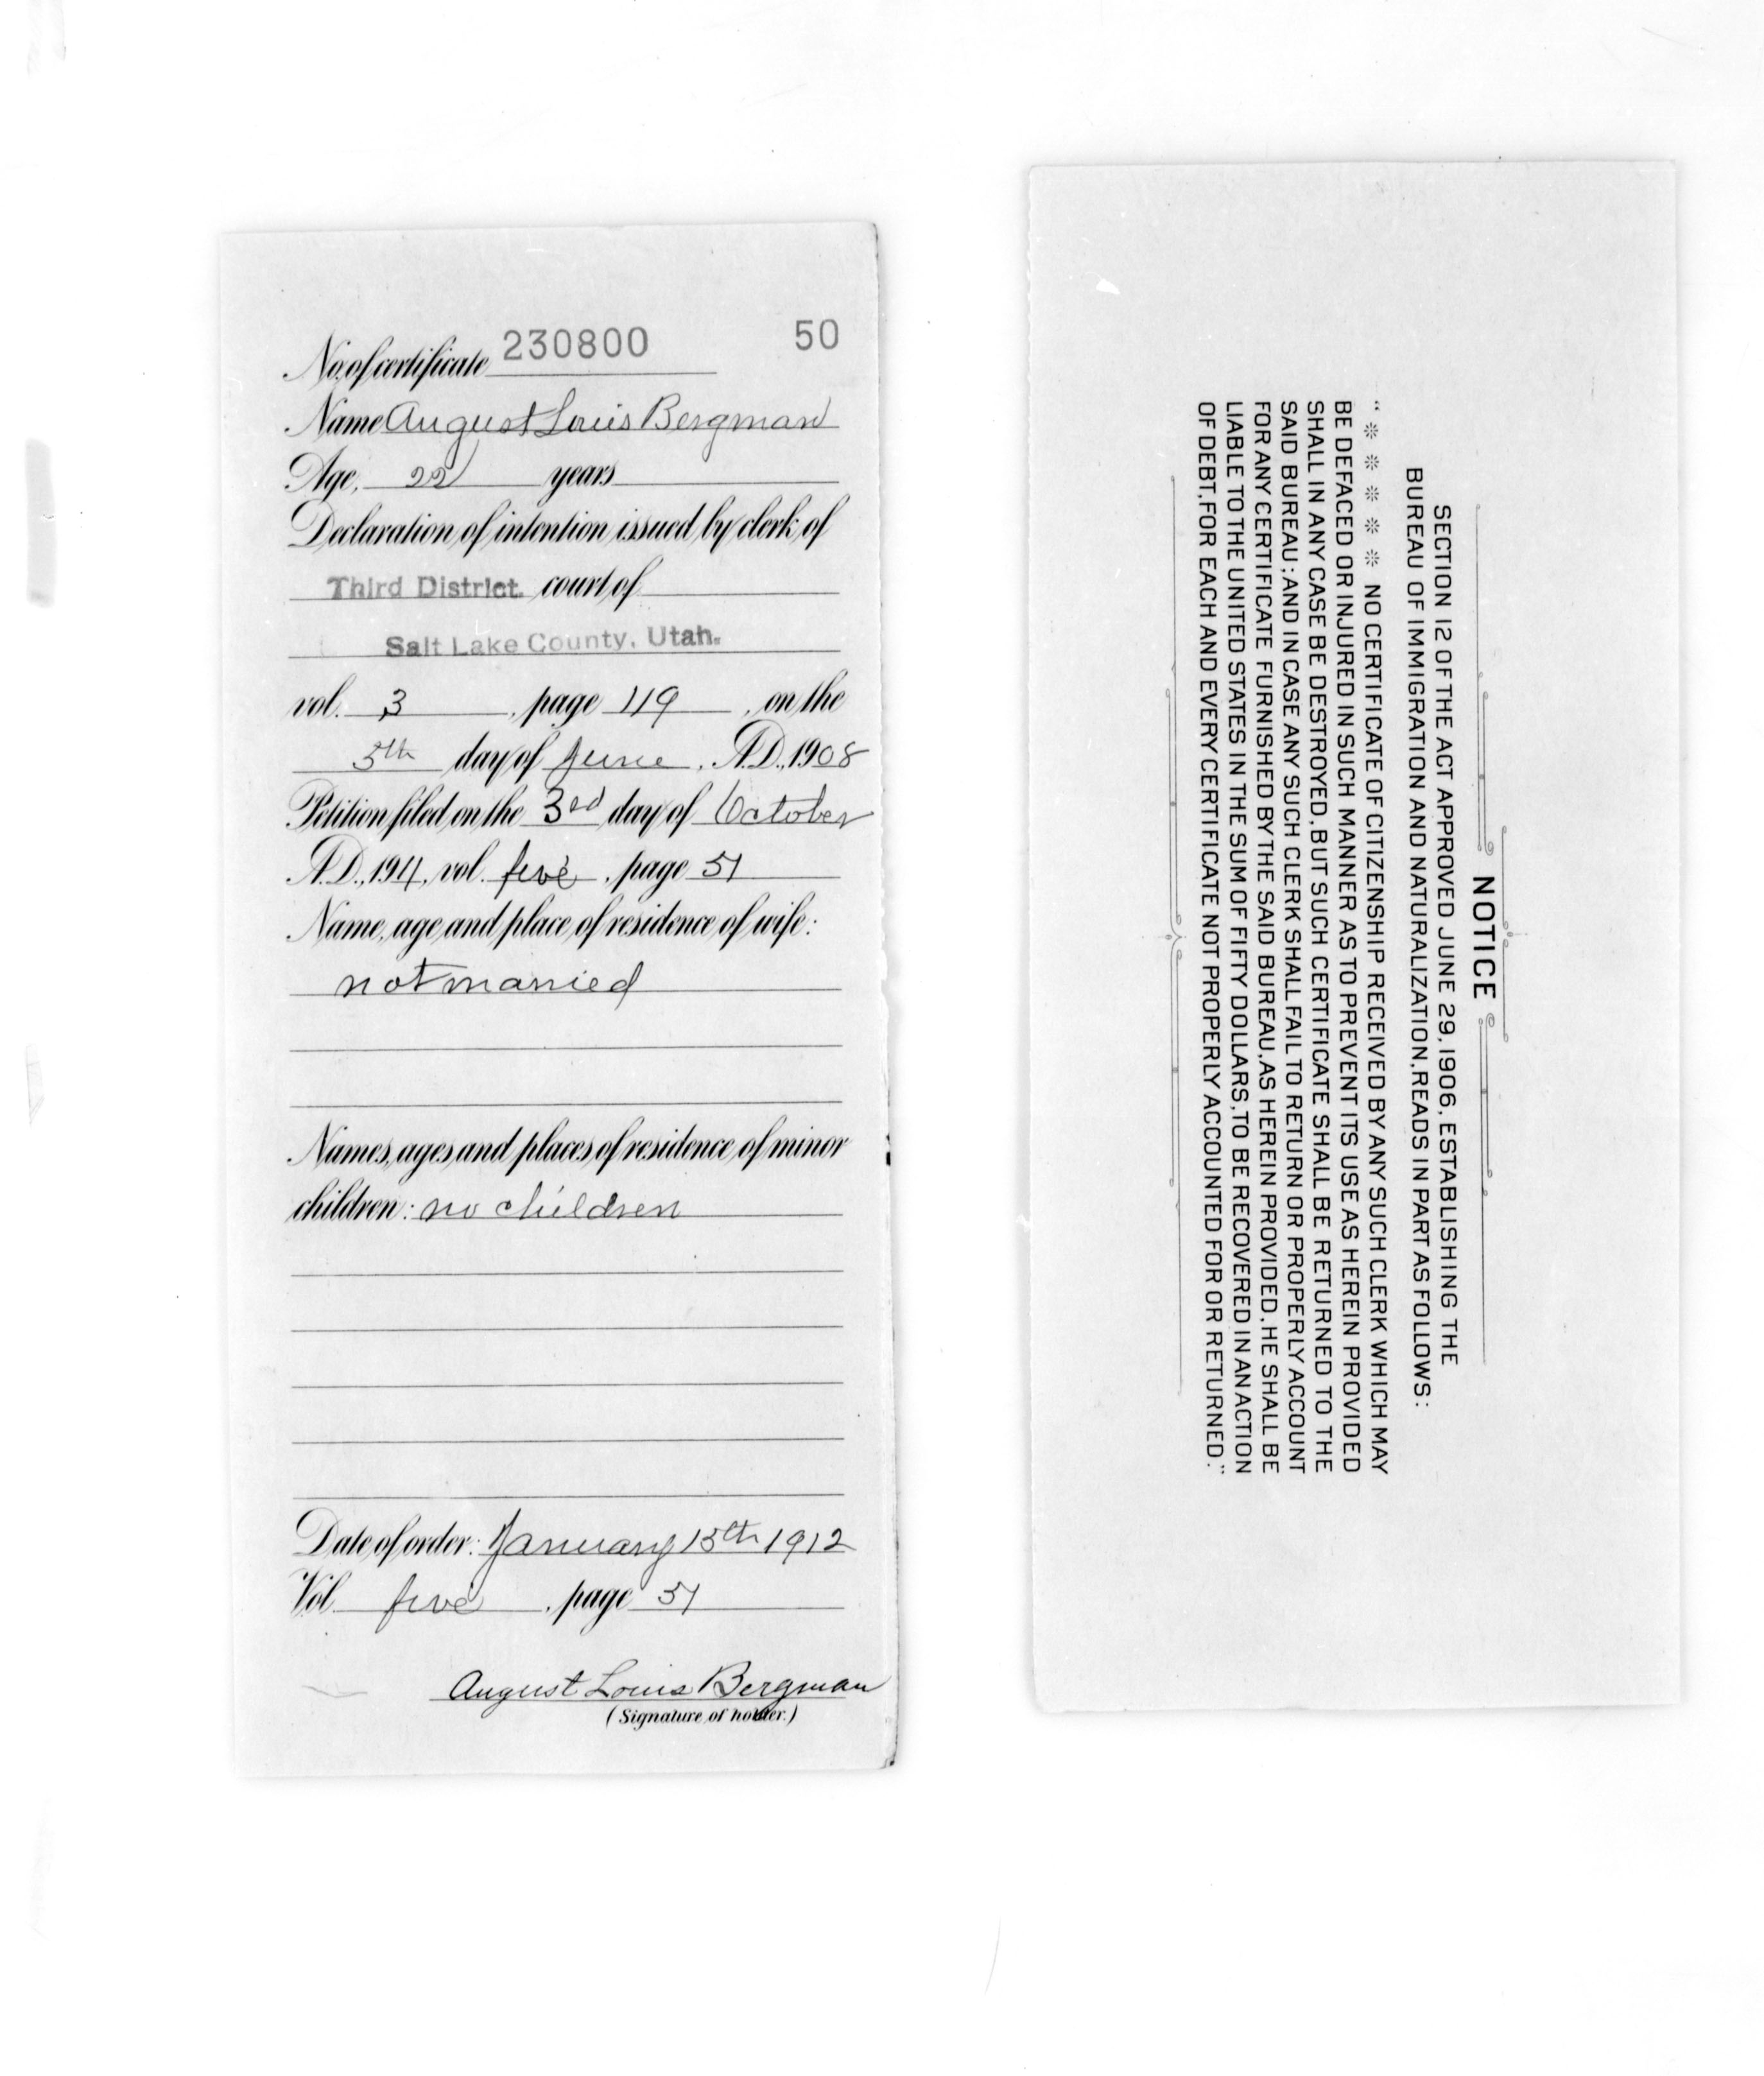 No. of certificate 230800 50
Name August Louis Bergman
Age, 22 years
Declaration of intention issued by clerk of
Third District. court of
Salt Lake County, Utah.
vol. 3, page 119, on the
5th day of June, A.D., 1908
Petition filed on the 3rd day of October
A.D., 1911, vol. five, page 51
Name, age and place of residence of wife:
not married
Names, ages and places of residence of minor
children: no children
Date of order: January 15th 1912
Vol. five, page 51
August Louis Bergman
(Signature of holder.)
NOTICE
SECTION 12 OF THE ACT APPROVED JUNE 29, 1906, ESTABLISHING THE
BUREAU OF IMMIGRATION AND NATURALIZATION, READS IN PART AS FOLLOWS:
" * * * * * NO CERTIFICATE OF CITIZENSHIP RECEIVED BY ANY SUCH CLERK WHICH MAY
BE DEFACED OR INJURED IN SUCH MANNER AS TO PREVENT ITS USE AS HEREIN PROVIDED
SHALL IN ANY CASE BE DESTROYED, BUT SUCH CERTIFICATE SHALL BE RETURNED TO THE
SAID BUREAU; AND IN CASE ANY SUCH CLERK SHALL FAIL TO RETURN OR PROPERLY ACCOUNT
FOR ANY CERTIFICATE FURNISHED BY THE SAID BUREAU, AS HEREIN PROVIDED, HE SHALL BE
LIABLE TO THE UNITED STATES IN THE SUM OF FIFTY DOLLARS, TO BE RECOVERED IN AN ACTION
OF DEBT, FOR EACH AND EVERY CERTIFICATE NOT PROPERLY ACCOUNTED FOR OR RETURNED."